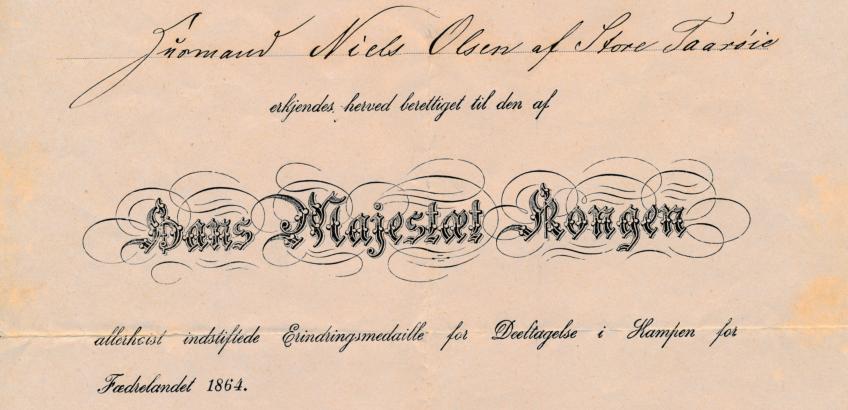 Huomand Niels Olsen af Store Taarøie
erkjendes herved berettiget til den af
Hans Majestæt Kongen
allerhoist indstiftede Erindringsmedaille for Deeltagelse i Kampen for
Fædrelandet 1864.